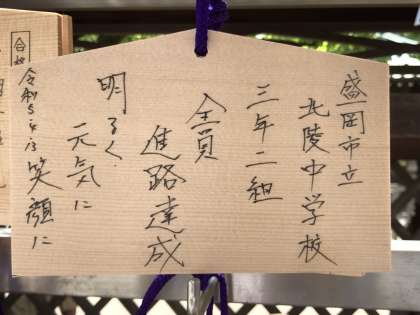 盛岡市立
北陵中学校
三年二組
全員
進路達成
明るく
元気に
笑顔に
令和5.4.13